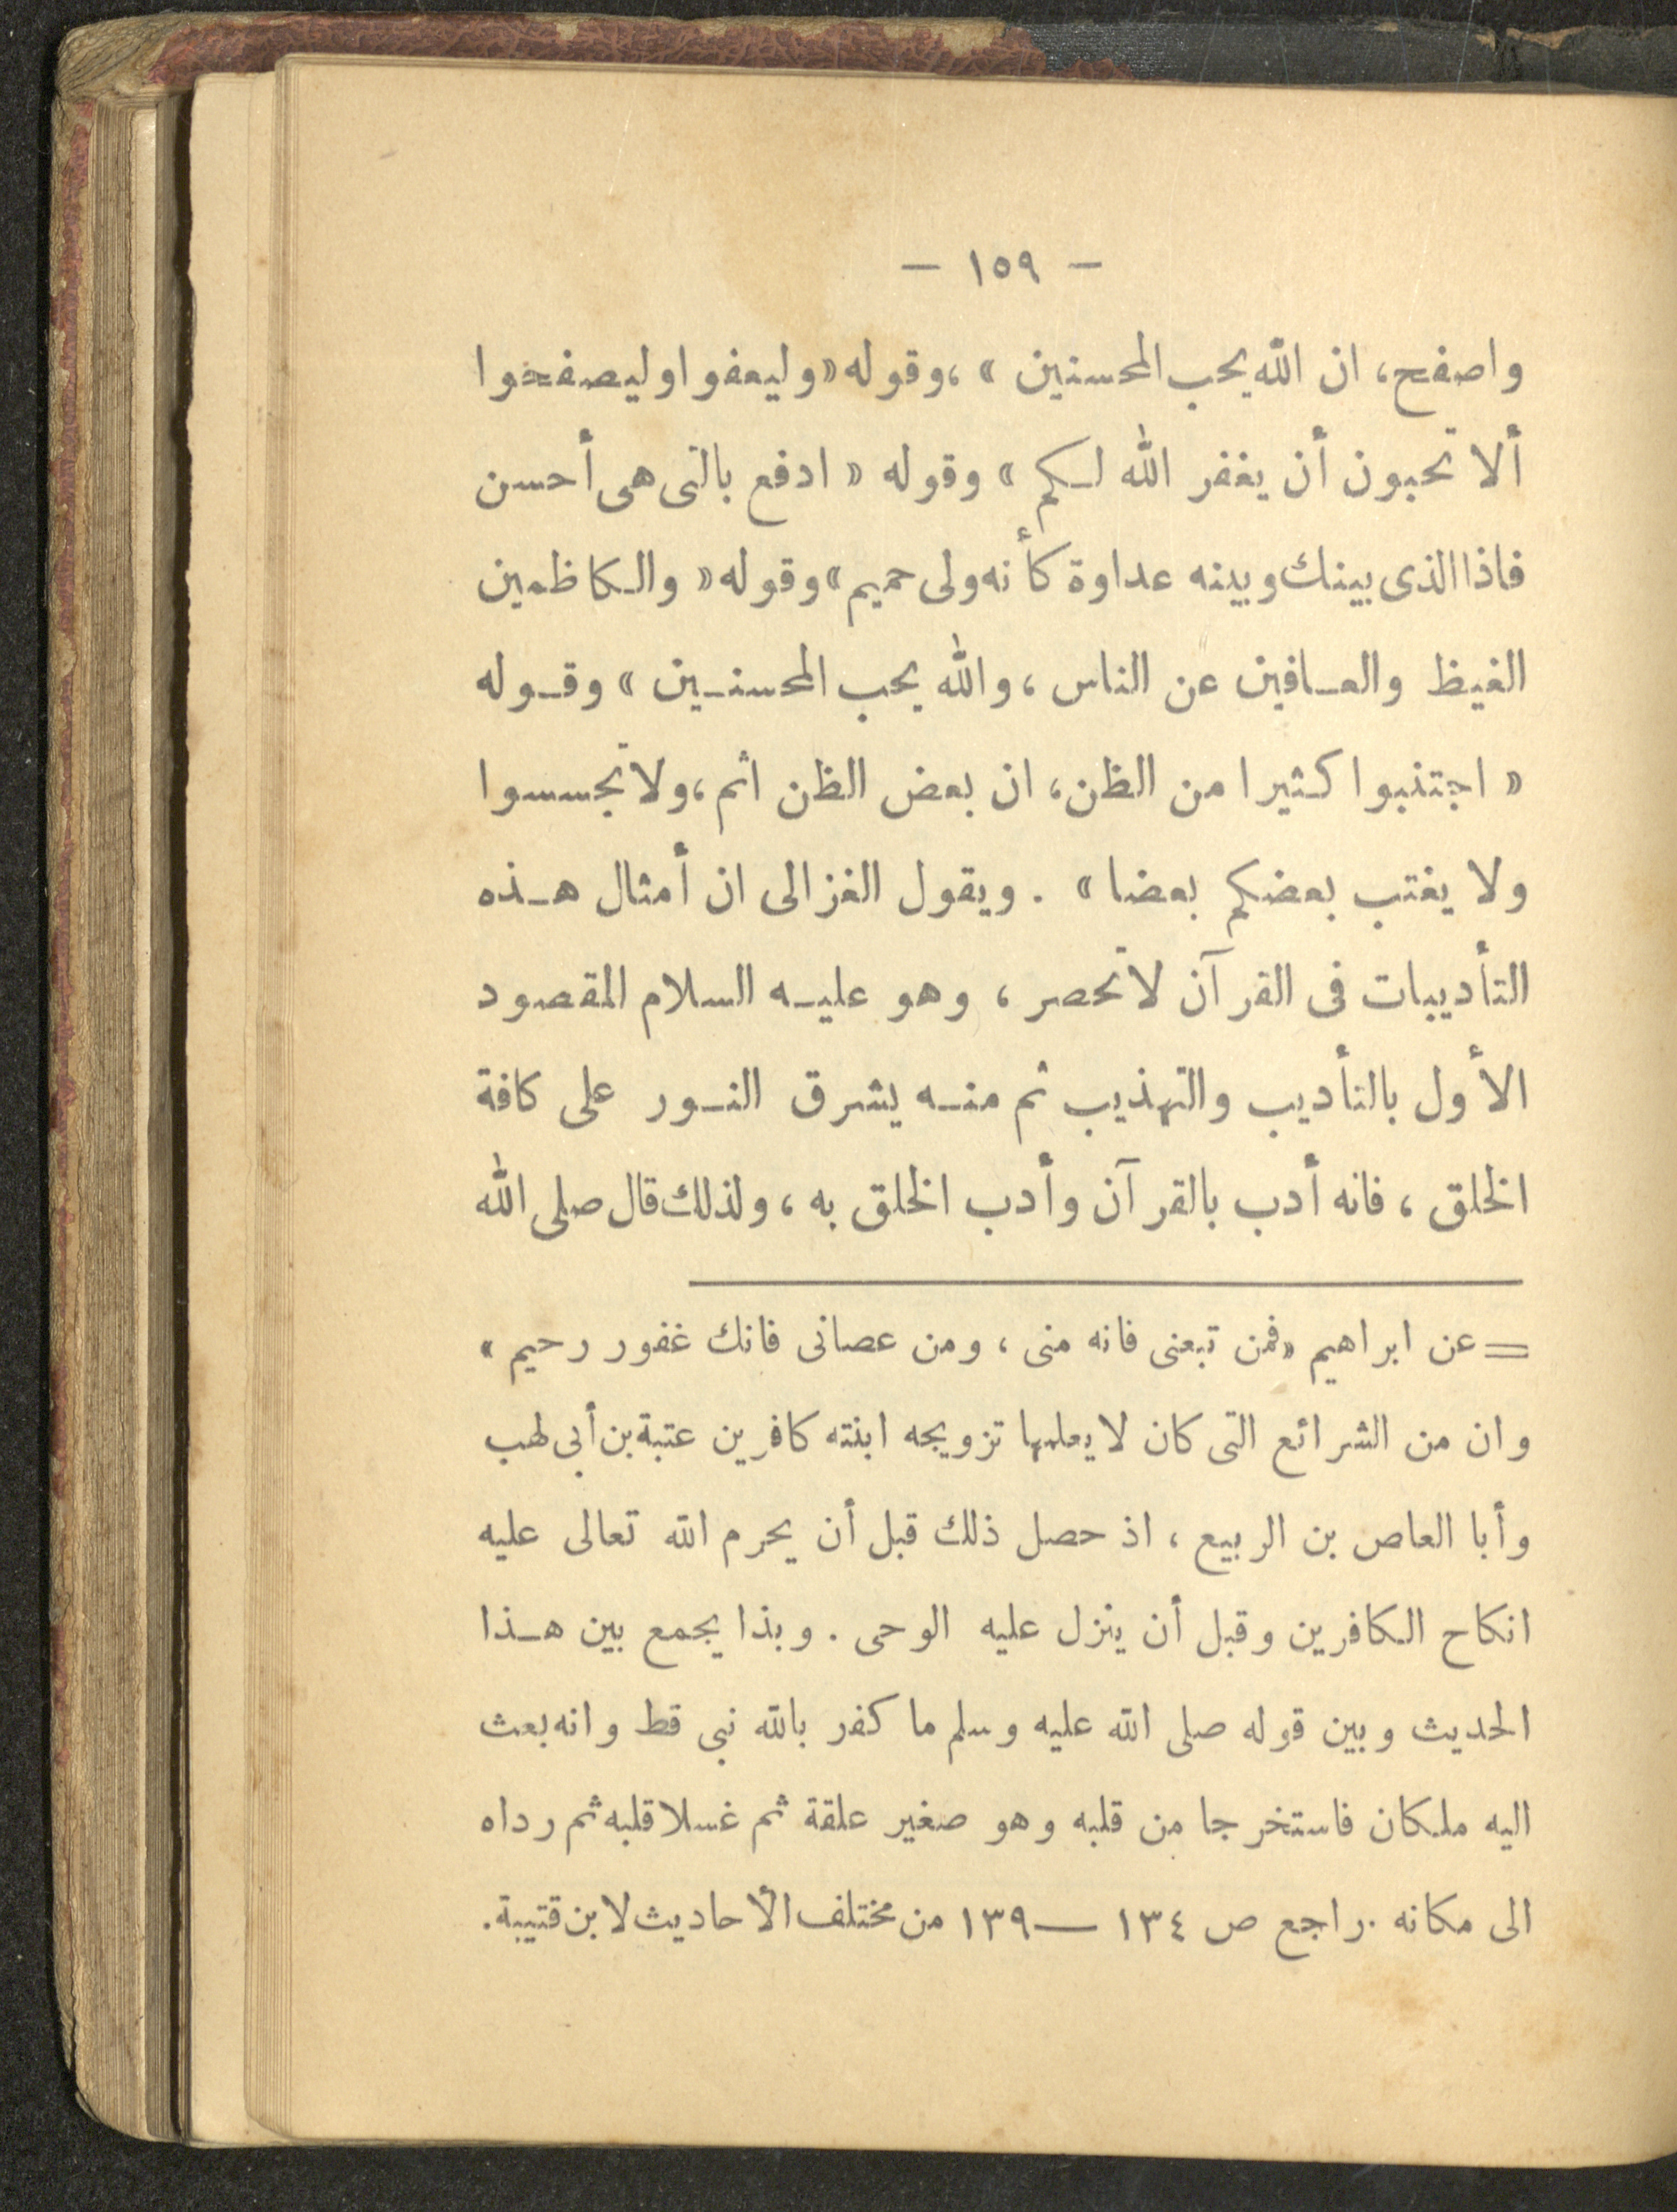 — ١٥٩ —
واصفح، ان الله يحب المحسنين »، وقوله « وليعفوا وليصفحوا
ألا تحبون أن يغفر الله لكم » وقوله « ادفع بالتى هى أحسن
فاذا الذى بينك وبينه عداوة كأنه ولى حميم » وقوله « والكاظمين
الغيظ والعافين عن الناس ، والله يحب المحسنين » وقوله
« اجتنبوا كثيرا من الظن، ان بعض الظن اثم، ولا تجسسوا
ولا يغتب بعضكم بعضا » . ويقول الغزالى ان أمثال هذه
التأديبات فى القرآن لا تحصر ، وهو عليه السلام المقصود
الأول بالتأديب والتهذيب ثم منه يشرق النور على كافة
الخلق ، فانه أدب بالقرآن وأدب الخلق به ، ولذلك قال صلى الله
= عن ابراهيم « فمن تبعنى فانه منى ، ومن عصانى فانك غفور رحيم »
وان من الشرائع التى كان لا يعلمها تزويجه ابنته كافرين عتبة بن أبى لهب
وأبا العاص بن الربيع ، اذ حصل ذلك قبل أن يحرم الله تعالى عليه
انكاح الكافرين وقبل أن ينزل عليه الوحى . وبذا يجمع بين هذا
الحديث وبين قوله صلى الله عليه وسلم ما كفر بالله نبى قط وانه بعث
اليه ملكان فاستخرجا من قلبه وهو صغير علقة ثم غسلا قلبه ثم رداه
الى مكانه . راجع ص ١٣٤ — ١٣٩ من مختلف الأحاديث لابن قتيبة.